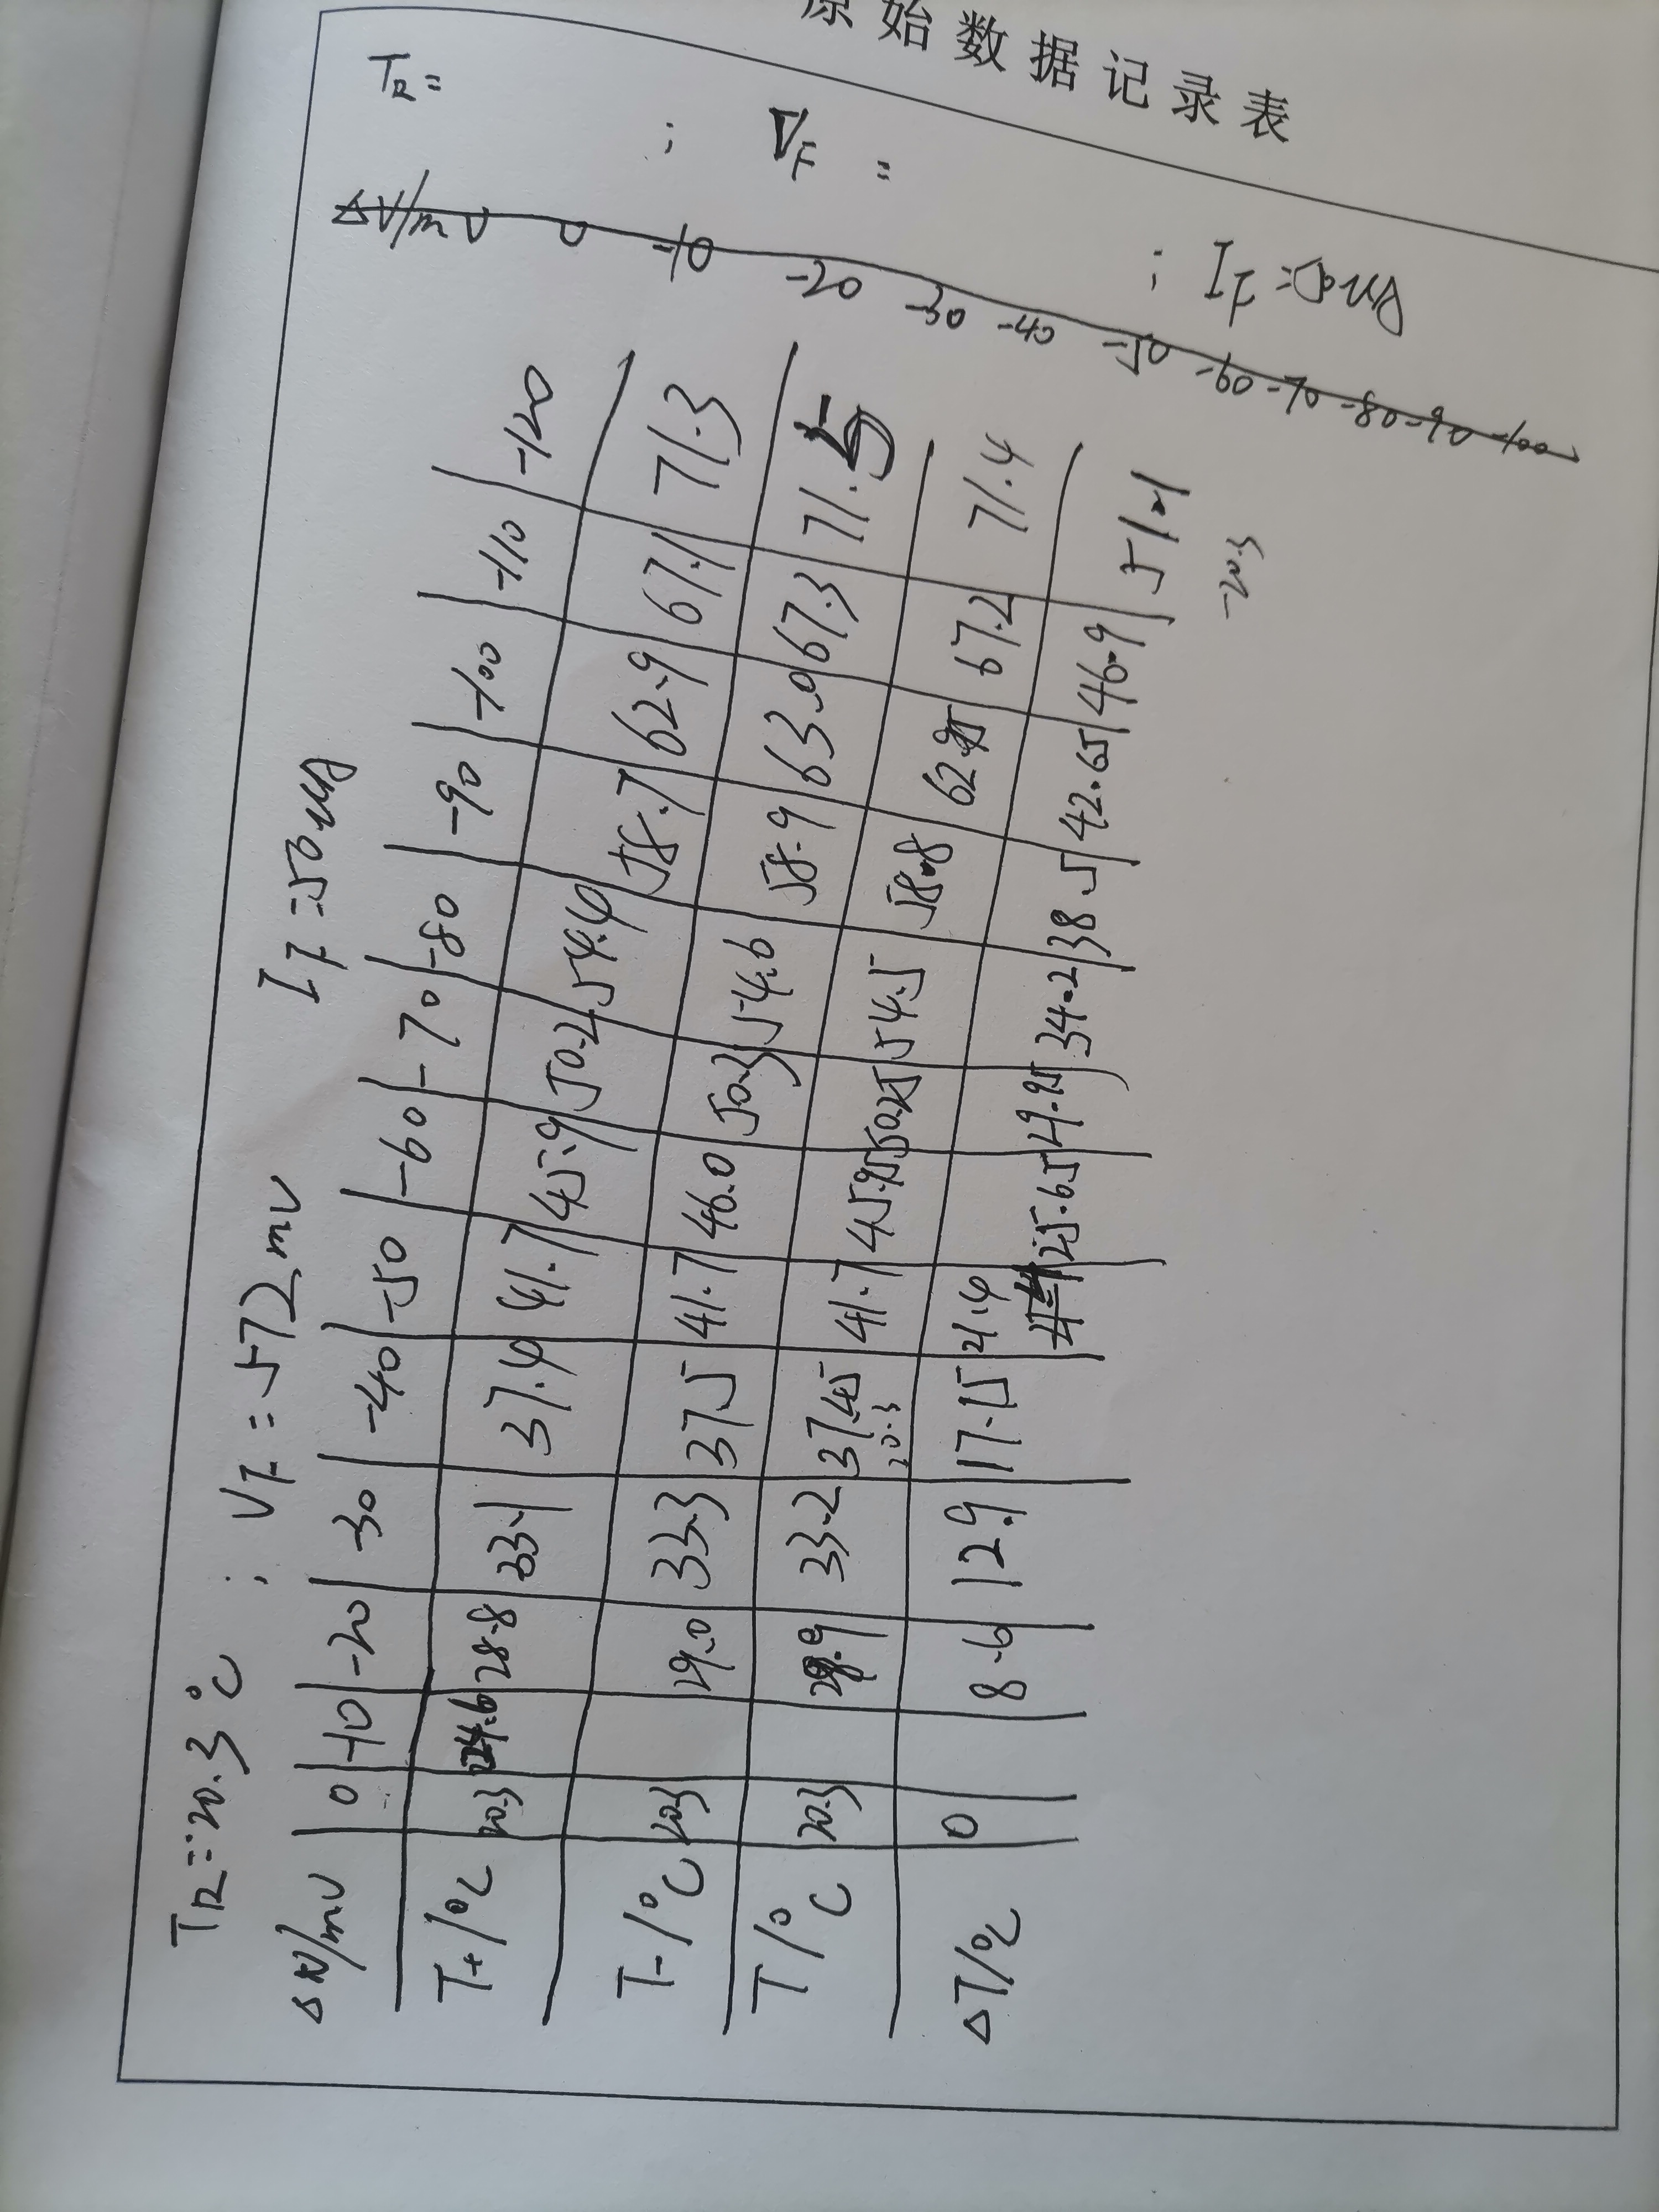 原始数据记录表
TR= ; VF = ; IF=50μA
ΔV/mV 0 -10 -20 -30 -40 -50 -60 -70 -80 -90 -100
TR=20.3℃ ; VF=572mV IF=50μA
ΔV/mV 0 -10 -20 -30 -40 -50 -60 -70 -80 -90 -100 -110 -120
T+/℃ 20.3 24.6 28.8 33.1 37.4 41.7 45.9 50.2 54.4 58.7 62.9 67.1 71.3
T-/℃ 20.3 29.0 33.3 37.5 41.7 46.0 50.3 54.6 58.9 63.0 67.3 71.5
T/℃ 20.3 28.9 33.2 37.45 41.7 45.95 50.25 54.5 58.8 62.95 67.2 71.4
20.3
ΔT/℃ 0 8.6 12.9 17.15 21.4 25.65 29.95 34.2 38.5 42.65 46.9 51.1
-20.3